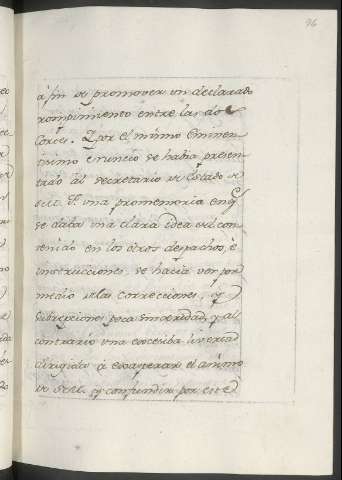 96
à fin de promover un declarado
rompimiento entre las dos
Cortes. Y por el mismo Eminen-
tisimo enuncio se habia presen-
tado al Secretario de Estado de
una promemoria en q.e
se daba una clara idea del con-
tenido en los otros despachos, è
instrucciones, se hacia ver por
medio de las correcciones, y
poca sinceridad, y al
contrario una excesiba livertad
dirigida à exasperar el animo
de y confundir por este